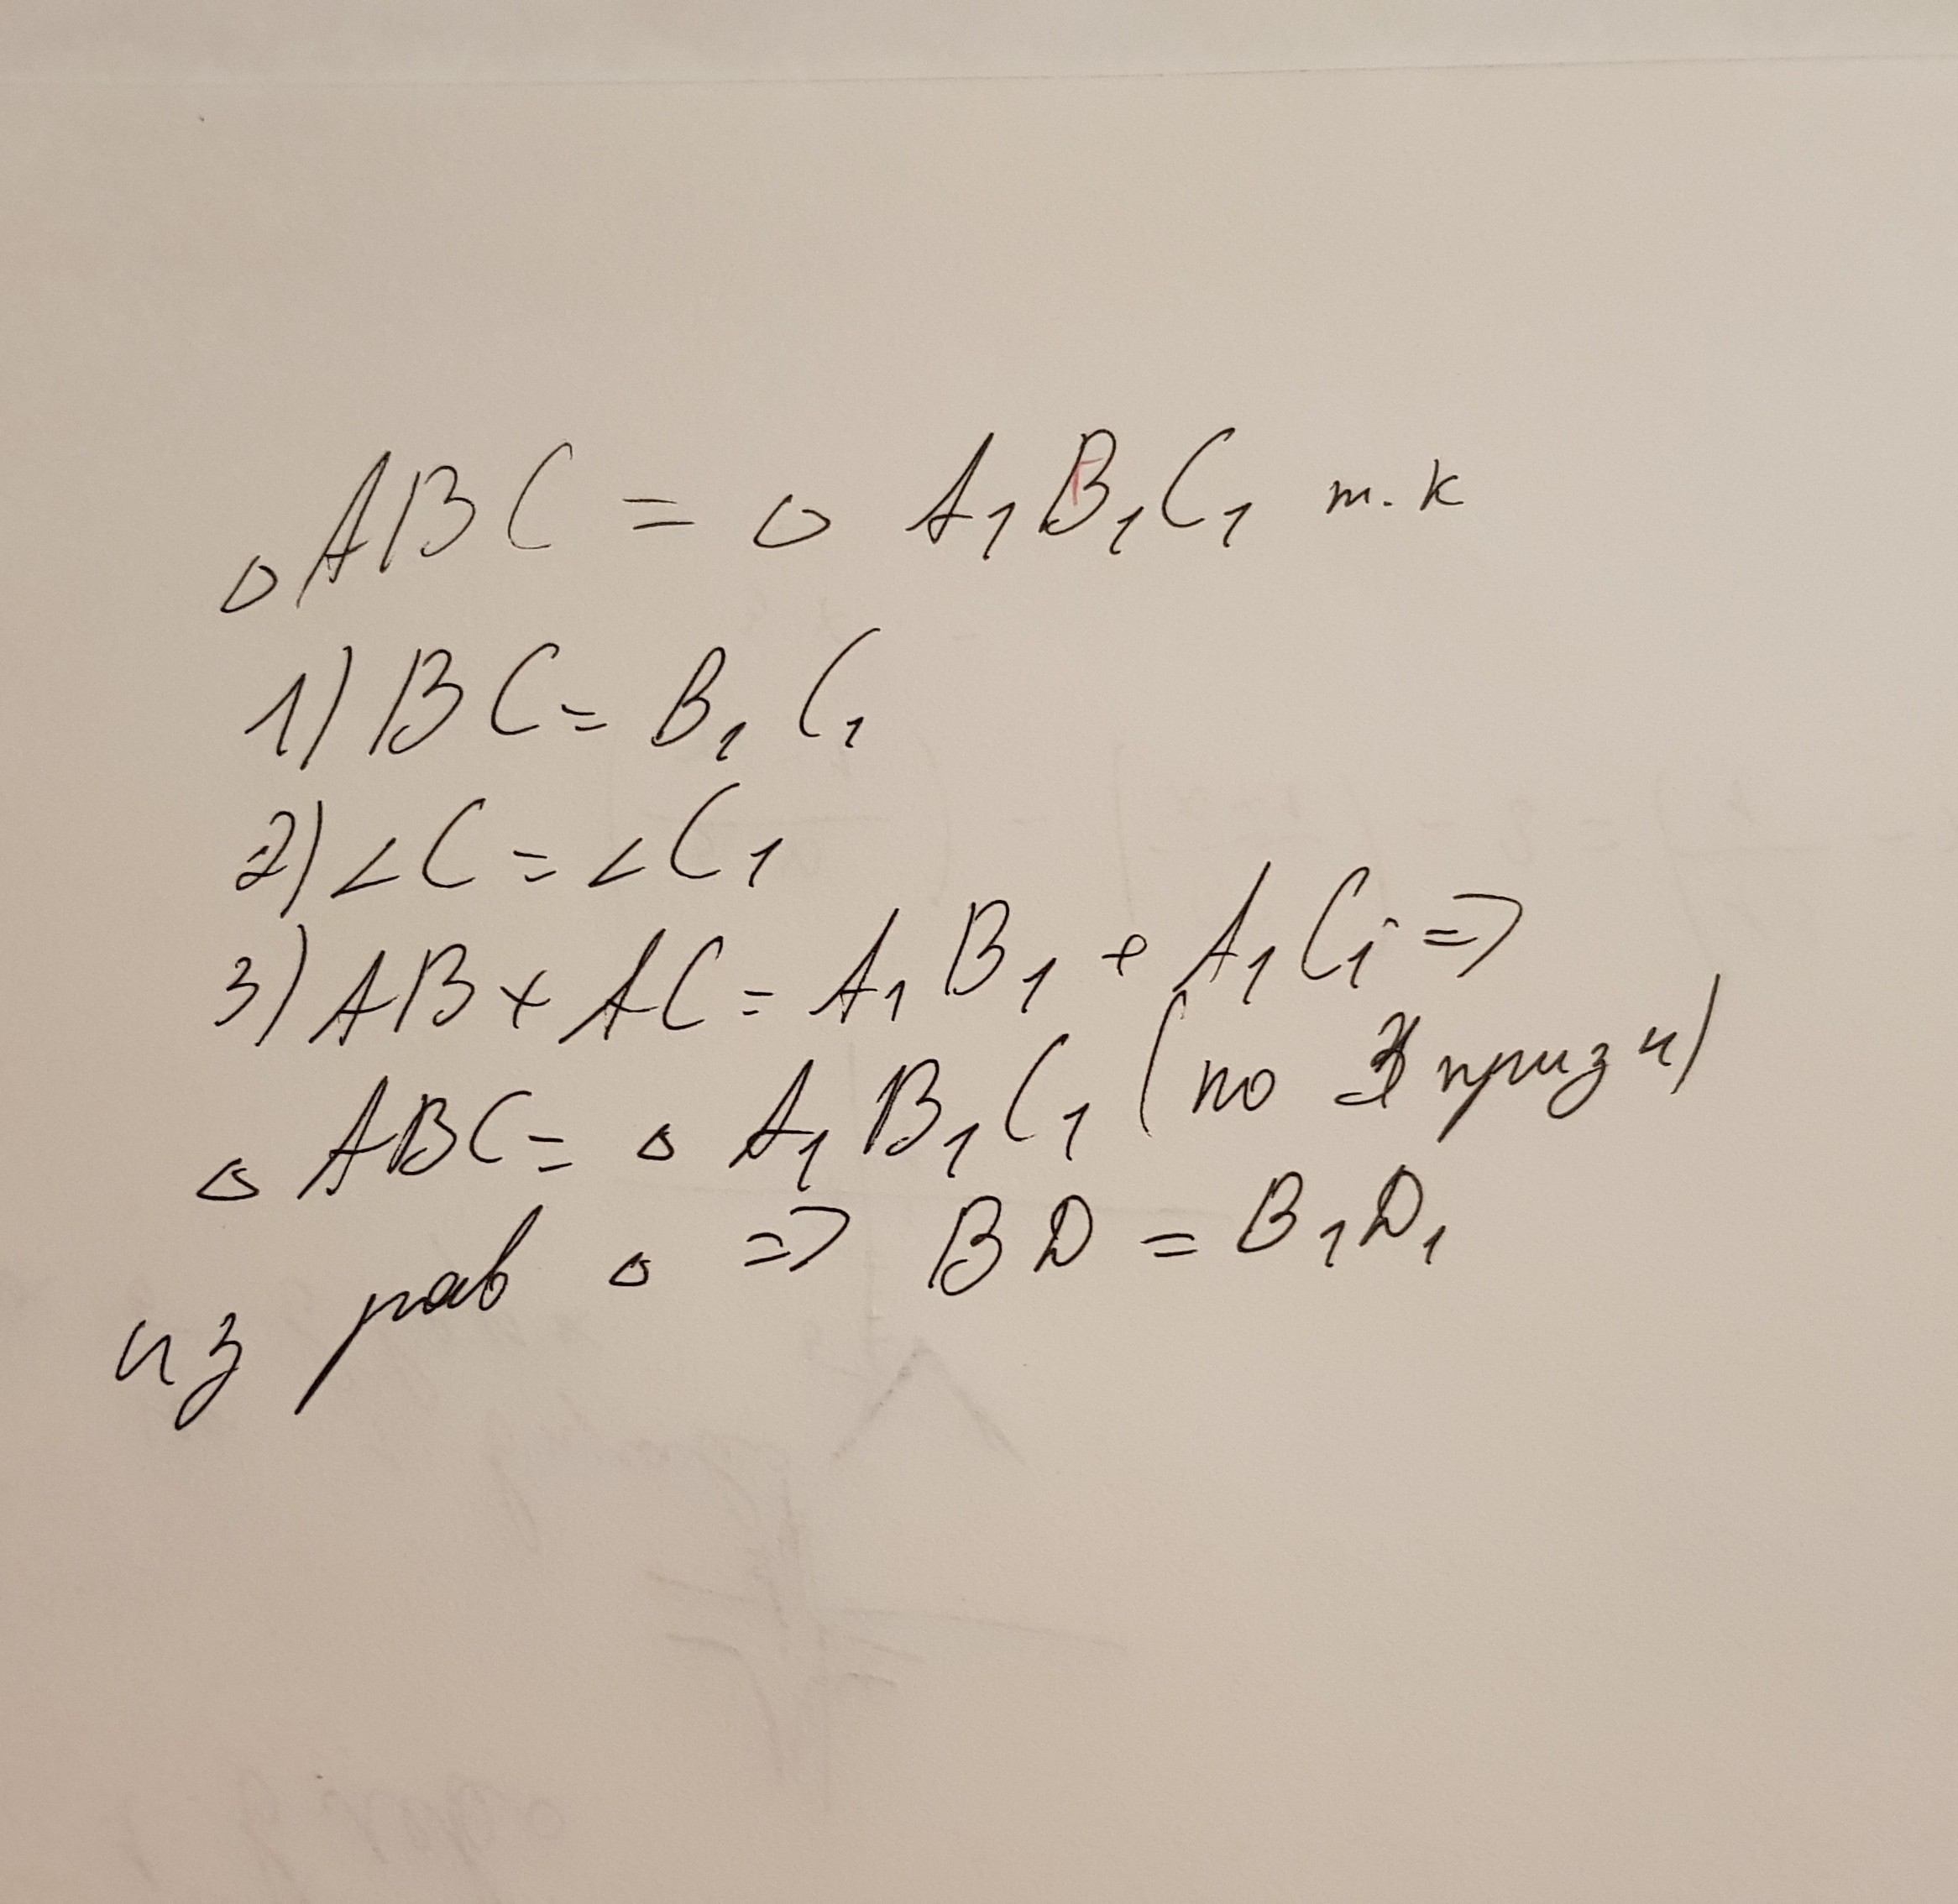 △ABC = △ A₁B₁C₁ т.к
1) BC = B₁C₁
2) ∠C = ∠C₁
3) AB + AC = A₁B₁ + A₁C₁ =>
△ABC = △ A₁B₁C₁ (по 3 призн)
из рав △ => BD = B₁D₁